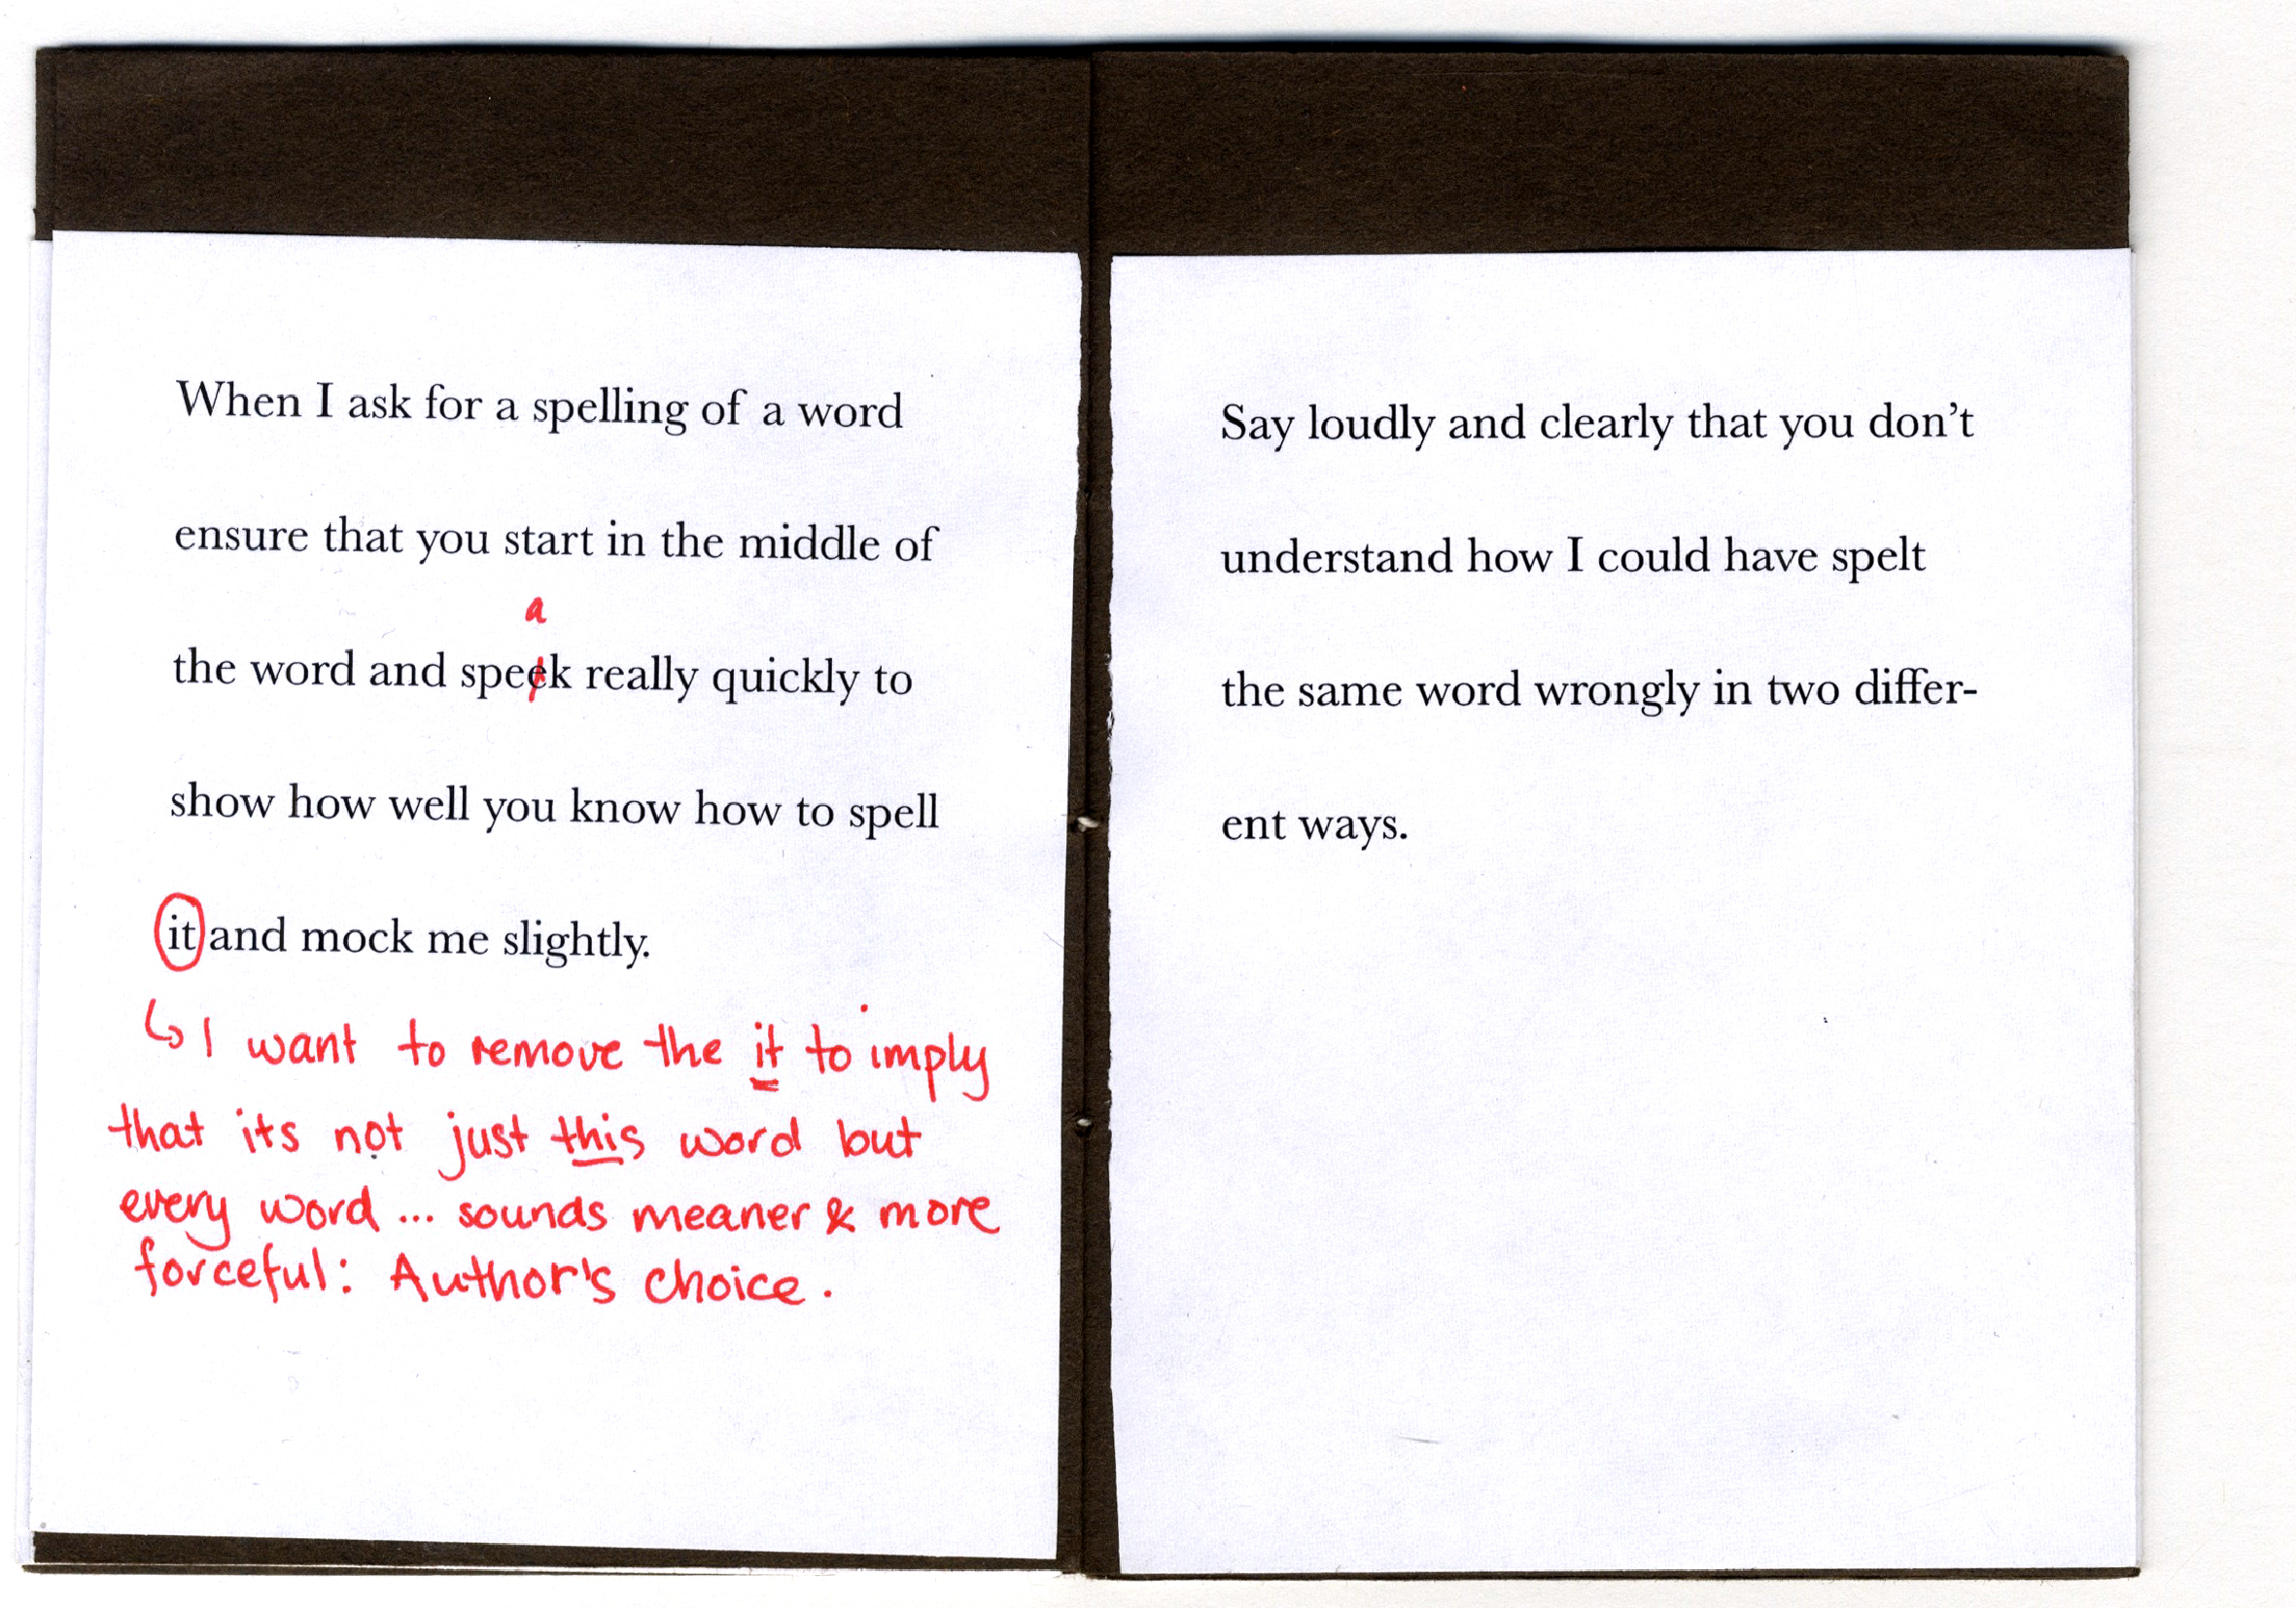 When I ask for a spelling of a word
ensure that you start in the middle of
a
the word and speek really quickly to
show how well you know how to spell
it and mock me slightly.
↳ I want to remove the it to imply
that its not just this word but
every word ... sounds meaner & more
forceful: Author's choice.
Say loudly and clearly that you don't
understand how I could have spelt
the same word wrongly in two differ-
ent ways.